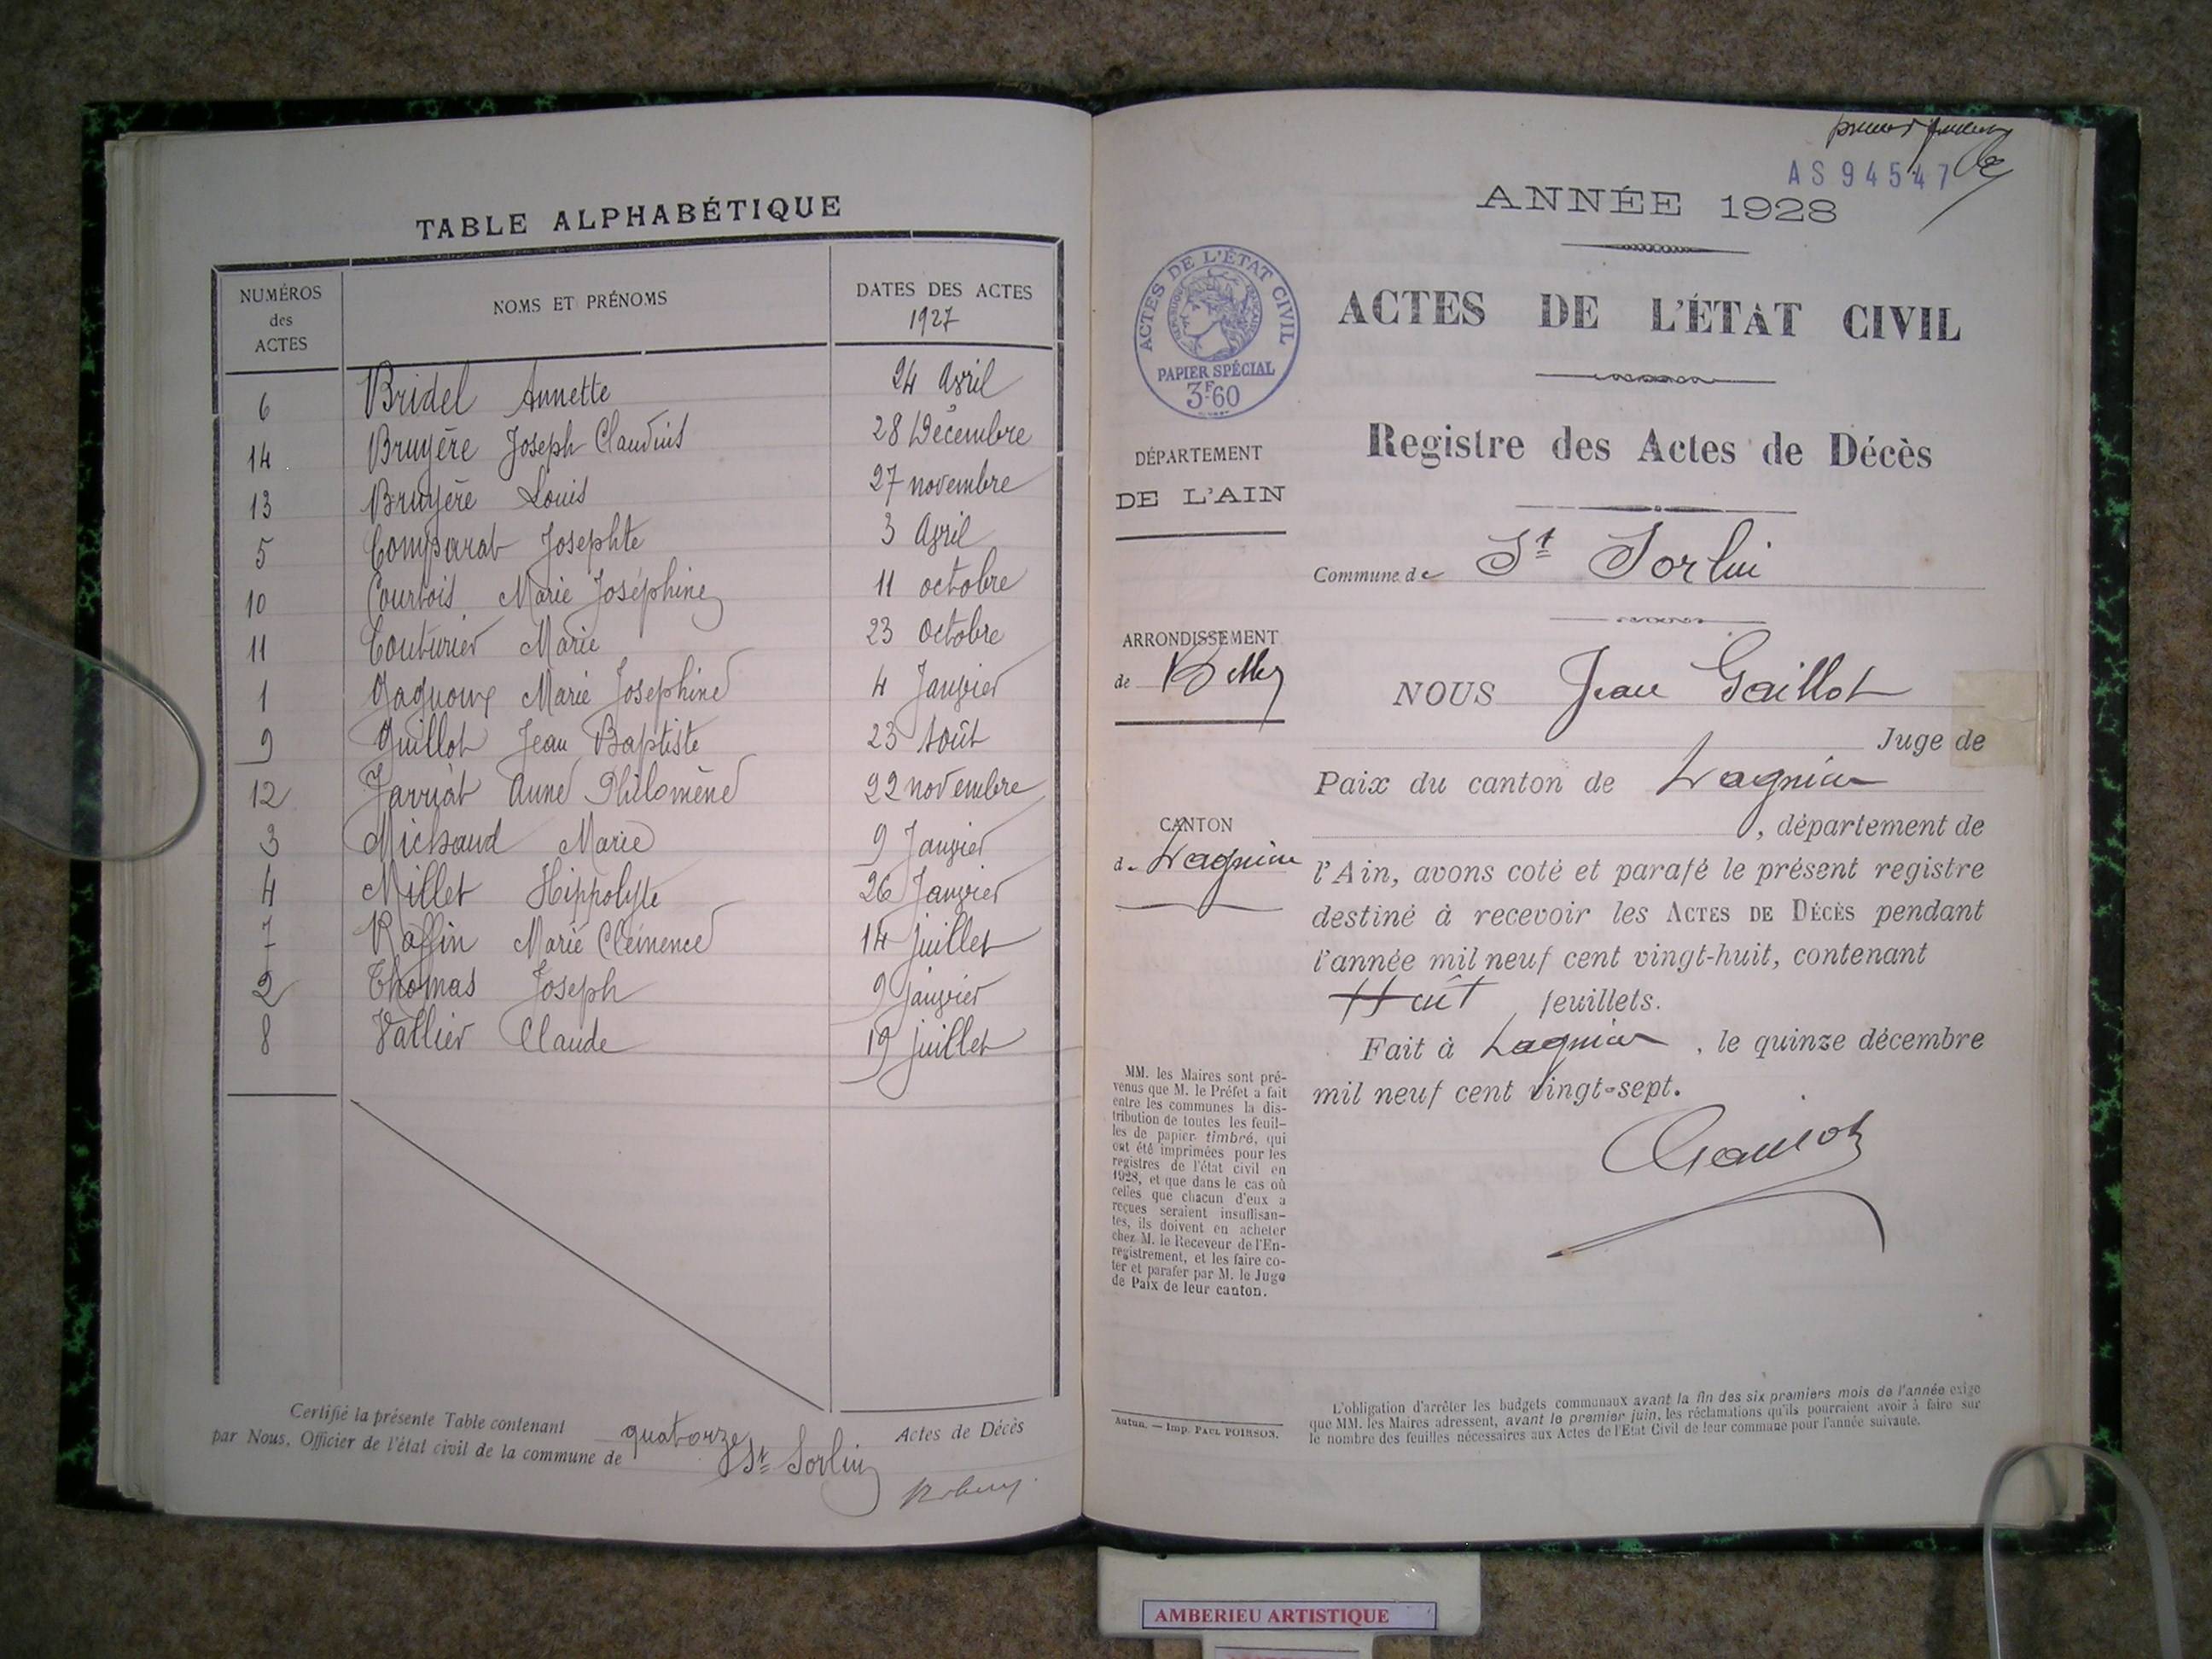 TABLE ALPHABÉTIQUE
NUMÉROS des ACTES NOMS ET PRÉNOMS DATES DES ACTES 1927
6 Bridel Annette 24 Avril
14 Bruyère Joseph Claudius 28 Décembre
13 Bruyère Louis 27 novembre
5 Comparat Josephte 3 Avril
10 Courtois Marie Joséphine 11 octobre
11 Couturier Marie 23 Octobre
1 Marie Josephine 4 Janvier
9 Guillot Jean Baptiste 23 Août
12 Jarriat Anne Philomène 22 novembre
3 Michaud Marie 9 Janvier
4 Millet Hippolyte 26 Janvier
7 Raffin Marie Clémence 14 juillet
2 Thomas Joseph 9 janvier
8 Vallier Claude 19 juillet
Certifié la présente Table contenant quatorze Actes de Décès
par Nous, Officier de l'état civil de la commune de St Sorlin
premier
AS94547
ANNÉE 1928
ACTES DE L'ÉTAT CIVIL
RÉPUBLIQUE FRANÇAISE
PAPIER SPÉCIAL
3F60
ACTES DE L'ÉTAT CIVIL
Registre des Actes de Décès
DÉPARTEMENT
DE L'AIN
Commune de St Sorlin
ARRONDISSEMENT
de Belley
NOUS Jean Gaillot
Juge de
Paix du canton de Lagnieu
, département de
CANTON
de Lagnieu
l'Ain, avons coté et parafé le présent registre
destiné à recevoir les ACTES DE DÉCÈS pendant
l'année mil neuf cent vingt-huit, contenant
Huit feuillets.
Fait à Lagnieu, le quinze décembre
mil neuf cent vingt-sept.
MM. les Maires sont pré-
venus que M. le Préfet a fait
entre les communes la dis-
tribution de toutes les feuil-
les de papier timbré, qui
ont été imprimées pour les
registres de l'état civil en
1928, et que dans le cas où
celles que chacun d'eux a
reçues seraient insuffisan-
tes, ils doivent en acheter
chez M. le Receveur de l'En-
registrement, et les faire co-
ter et parafer par M. le Juge
de Paix de leur canton.
Autun. — Imp. PAUL POIRSON.
L'obligation d'arrêter les budgets communaux avant la fin des six premiers mois de l'année exige
que MM. les Maires adressent, avant le premier juin, les réclamations qu'ils pourraient avoir à faire sur
le nombre des feuilles nécessaires aux Actes de l'Etat Civil de leur commune pour l'année suivante.
AMBERIEU ARTISTIQUE